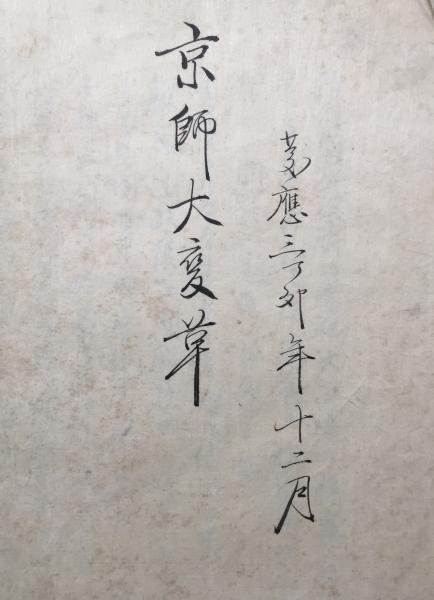 慶應三丁卯年十二月
京師大変革